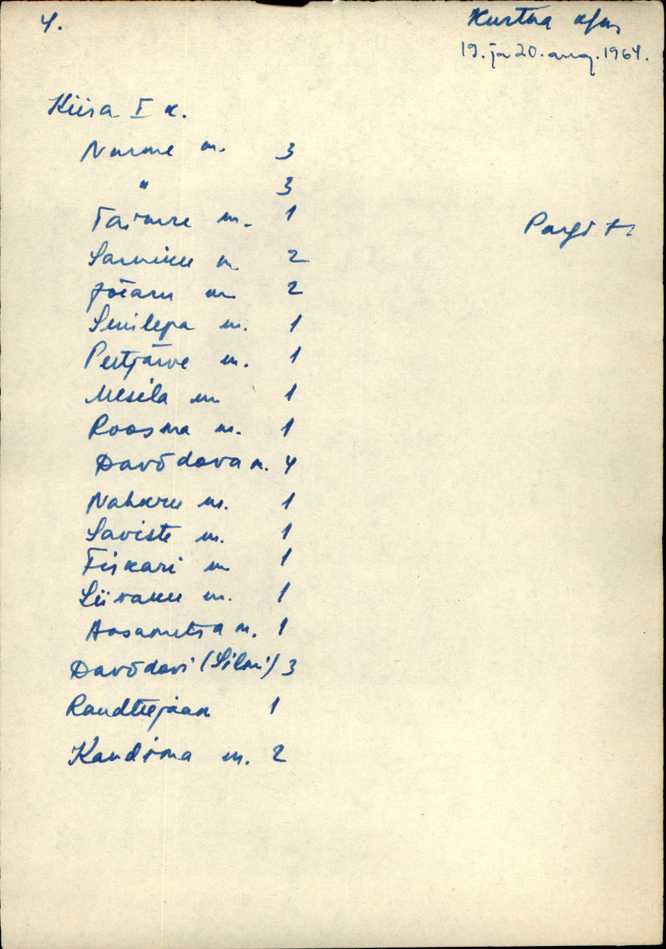 4.
Kurtna
19. ja 20. aug. 1964.
Kiisa I k.
Nurme m. 3
" 3
Taimre m. 1
Pargi t.
Sarniku m 2
Jõearu m 2
Senilepa m. 1
Peetjärve m. 1
Mesila m 1
Roosma m. 1
Davõdova m. 4
Nahkru m. 1
Saviste m. 1
Fiskari m 1
Liivaku m. 1
Aasametsa m. 1
Davõdovi (Silmi) 3
Raudteejaam 1
Kandima m. 2